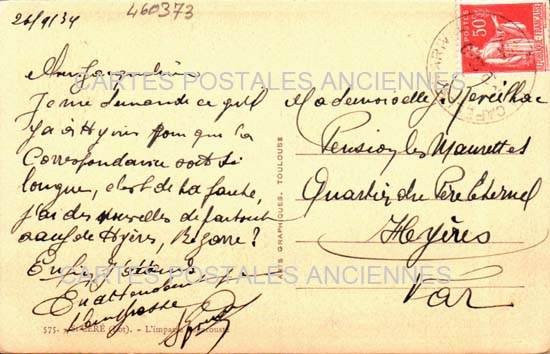 26/9/34
460373
Je me demande ce qu'il
y a à Hyères pour que la
Correspondance soit si
longue, c'est de ta faute,
j'ai des nouvelles de partout
sauf de Hyères, Bizarre ?
En attendant
Mademoiselle J.
Pension les Maurettes
Quartier du Père Eternel
Hyères
Var
POSTES
50c
REPUBLIQUE FRANÇAISE
ARTS GRAPHIQUES. TOULOUSE
575. - St-CÉRÉ (Lot). - L'impasse
CARTES POSTALES ANCIENNES
CARTES POSTALES ANCIENNES
CARTES POSTALES ANCIENNES